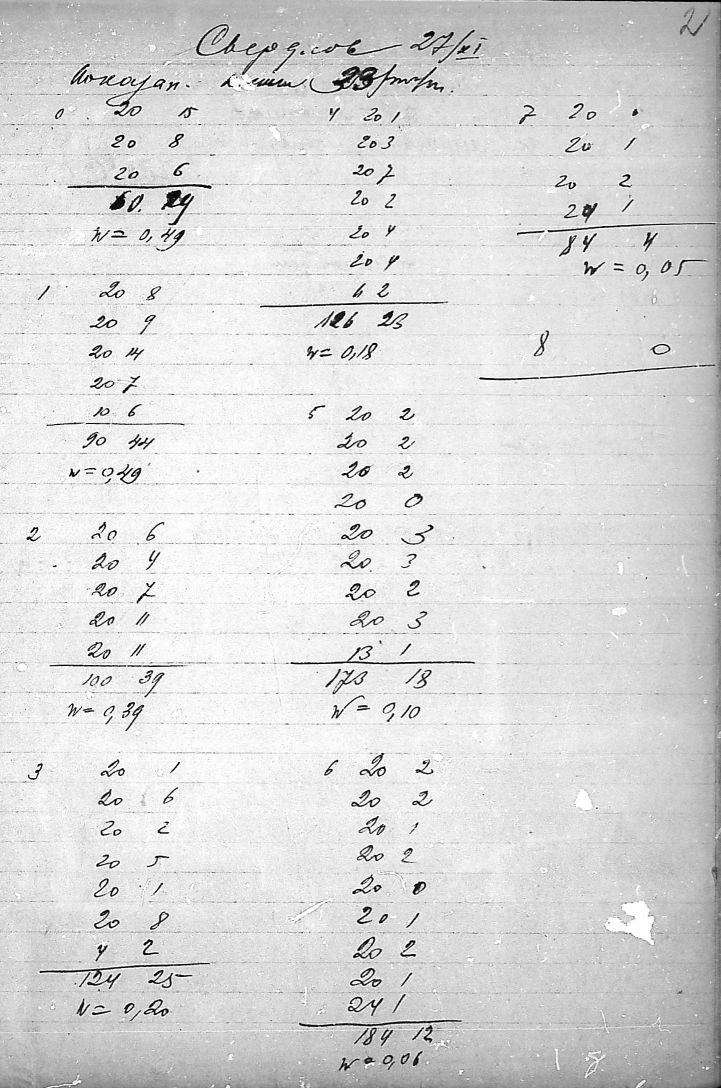 2
Свердлов 27/XI
Показан. 23
0 20 15
20 8
20 6
60. 29
W = 0,49
1 20 8
20 9
20 14
20 7
10 6
90 44
W = 0,49
2 20 6
20 4
20 7
20 11
20 11
100 39
W = 0,39
3 20 1
20 6
20 2
20 5
20 1
20 8
4 2
124 25
W = 0,20
4 20 1
20 3
20 7
20 2
20 4
20 4
6 2
126 23
W = 0,18
5 20 2
20 2
20 2
20 0
20 3
20 3
20 2
20 3
13 1
173 18
W = 0,10
6 20 2
20 2
20 1
20 2
20 0
20 1
20 2
20 1
24 1
184 12
W = 0,06
7 20 0
20 1
20 2
24 1
84 4
W = 0,05
8 0